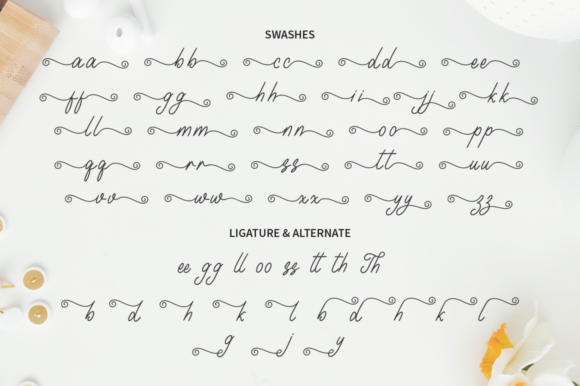 SWASHES
aa bb cc dd ee
ff gg hh ii jj kk
ll mm nn oo pp
qq rr ss tt uu
vv ww xx yy zz
LIGATURE & ALTERNATE
ee gg ll oo ss tt th Th
b d h k l b d h k l
g j y